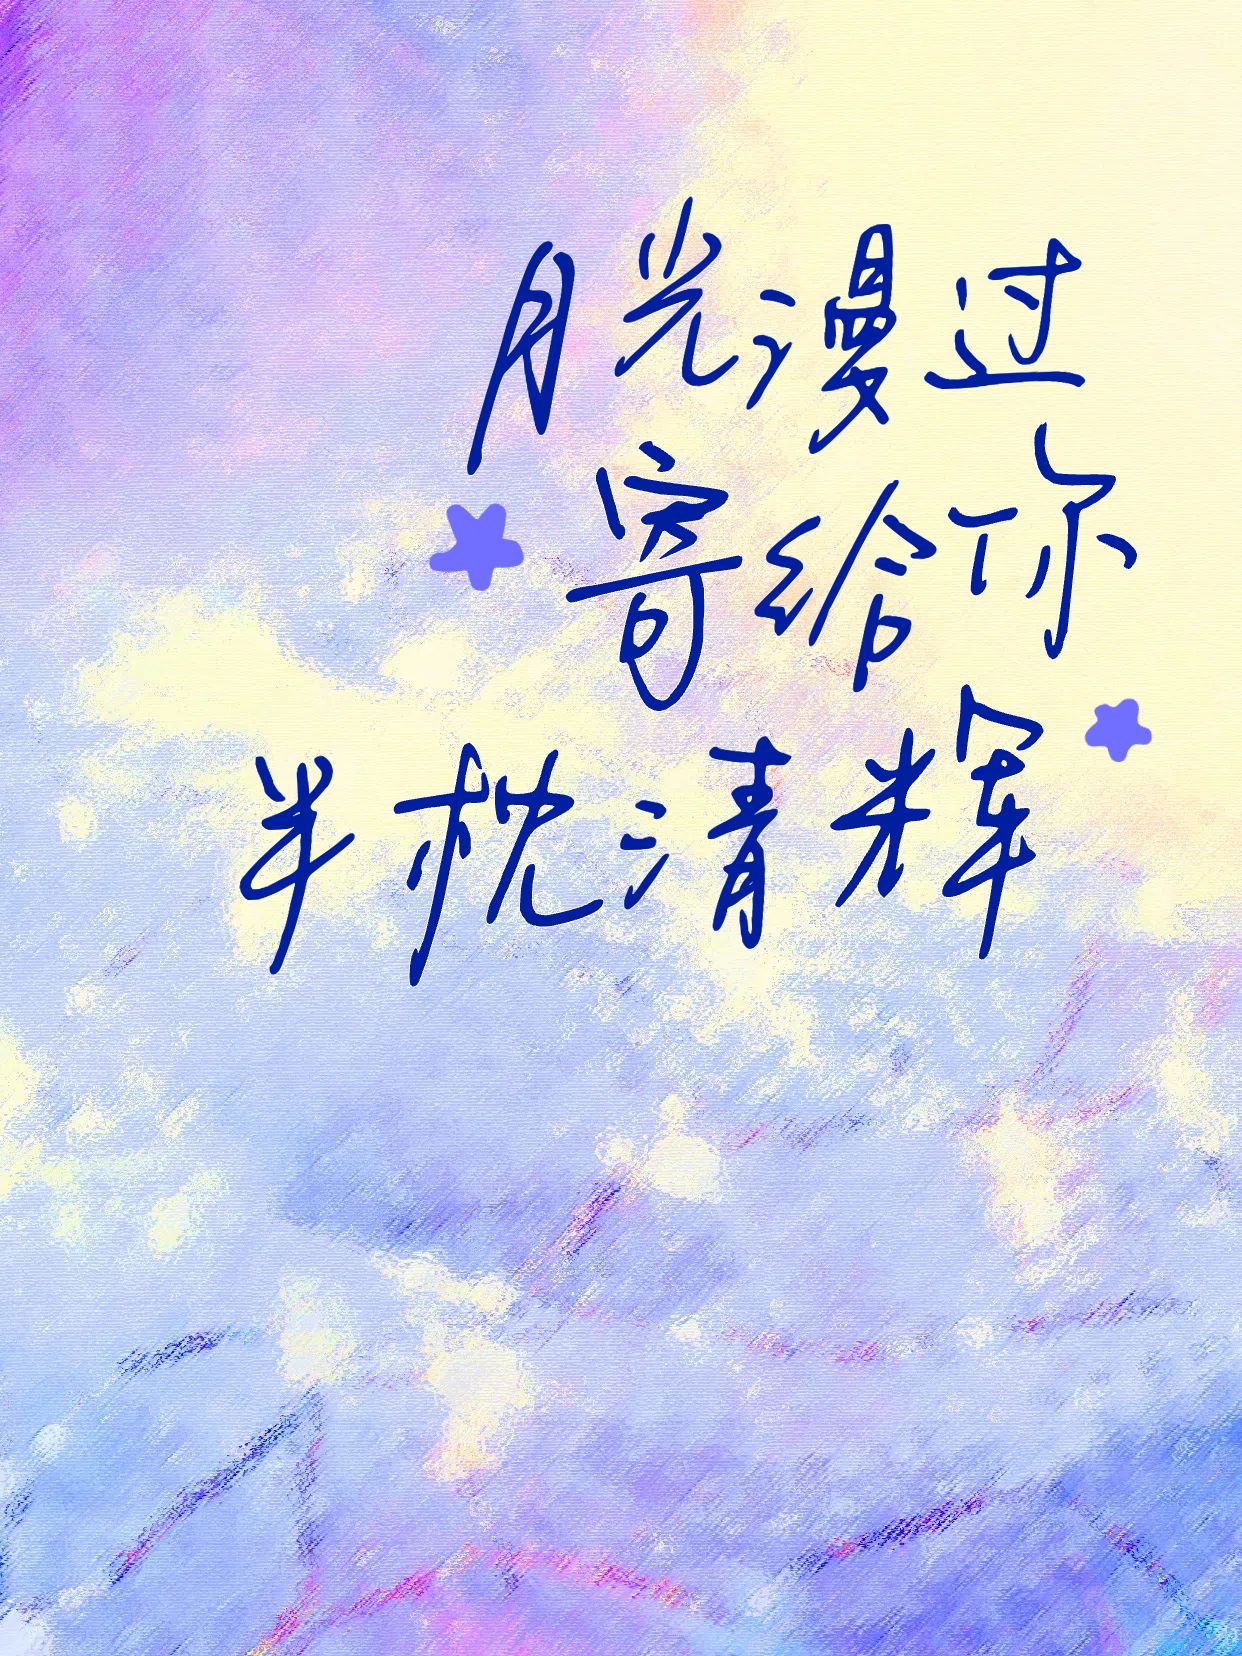 月光漫过
寄给你
半枕清辉